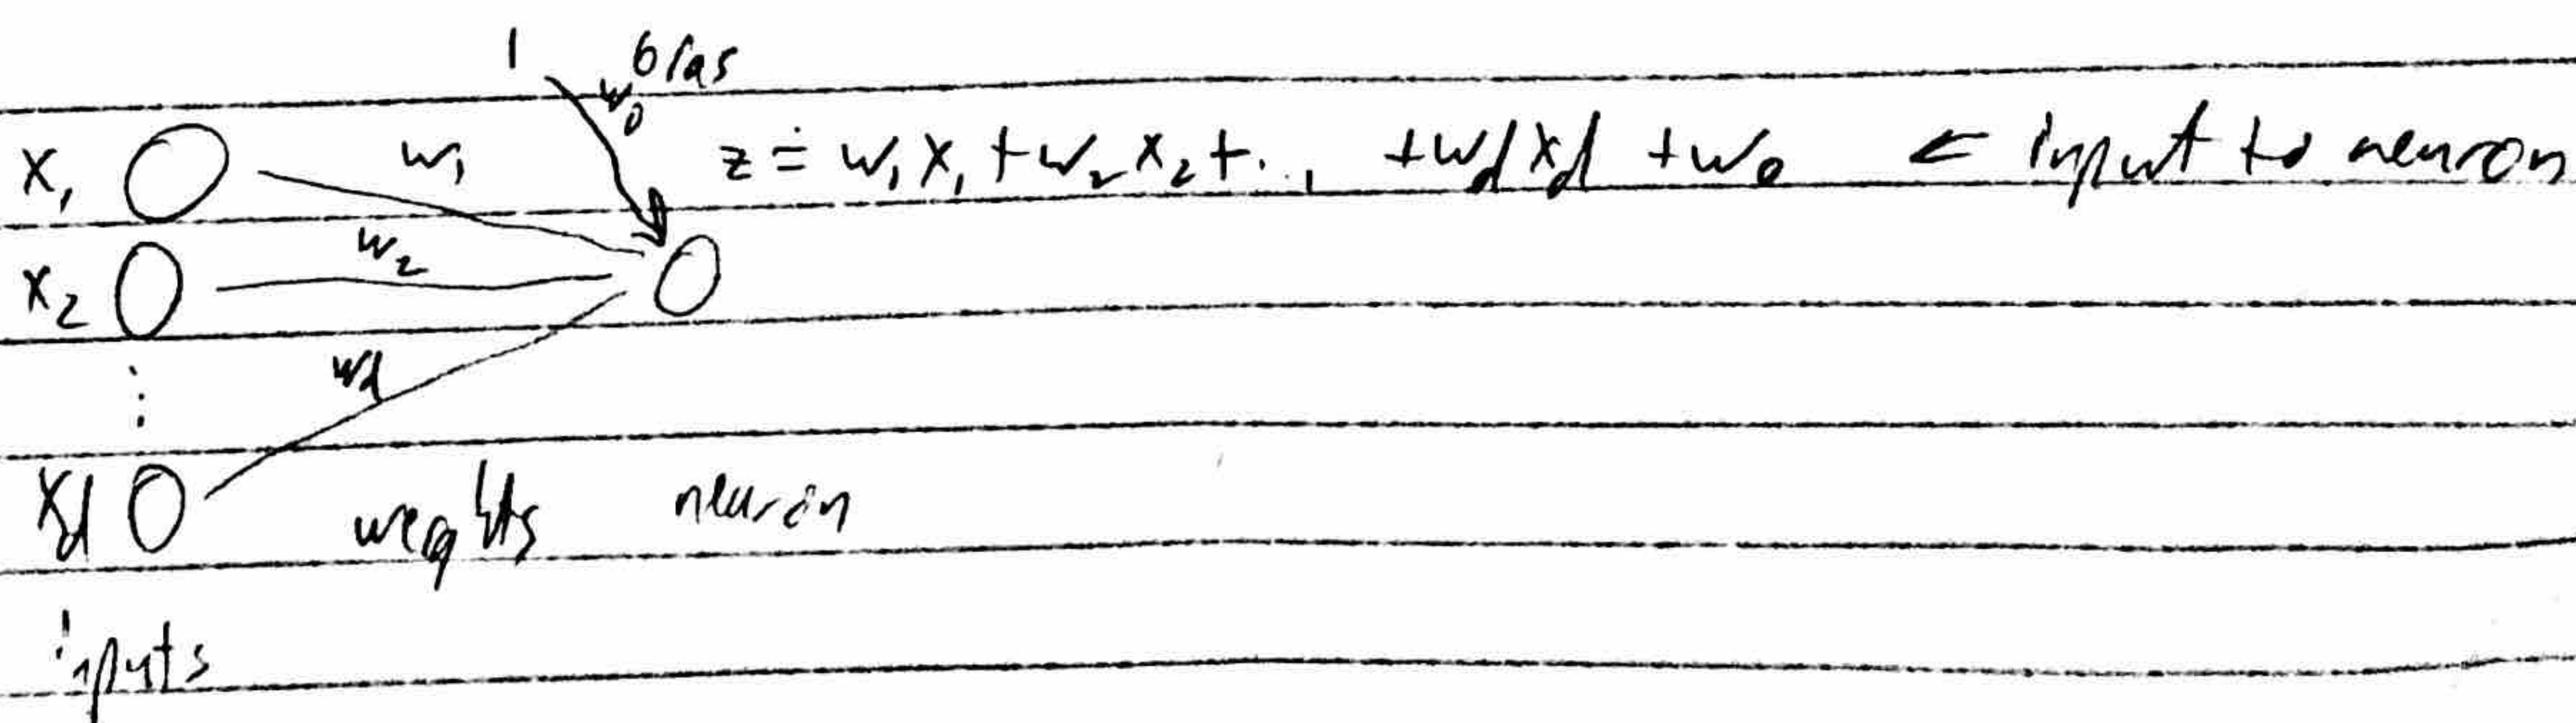 1 bias
w₀
x₁ w₁ z ≐ w₁x₁ + w₂x₂ + ... + w_d x_d + w₀ ← input to neuron
x₂ w₂
⋮ w_d
x_d weights neuron
inputs